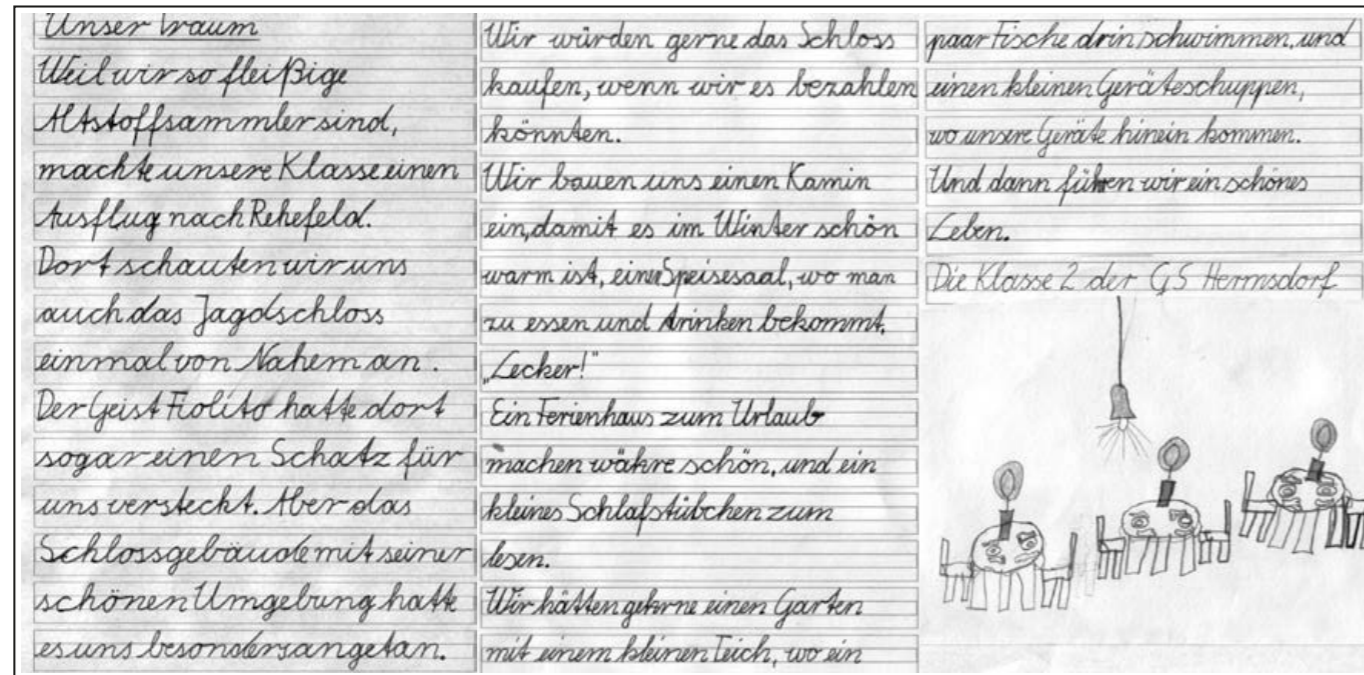 Unser Traum
Weil wir so fleißige
Altstoffsammler sind,
machte unsere Klasse einen
Ausflug nach Rehefeld.
Dort schauten wir uns
auch das Jagdschloss
einmal von Nahem an.
Der Geist Fiolito hatte dort
sogar einen Schatz für
uns versteckt. Aber das
Schlossgebäude mit seiner
schönen Umgebung hatte
es uns besonders angetan.
Wir würden gerne das Schloss
kaufen, wenn wir es bezahlen
könnten.
Wir bauen uns einen Kamin
ein, damit es im Winter schön
warm ist, einen Speisesaal, wo man
zu essen und trinken bekommt.
„Lecker!"
Ein Ferienhaus zum Urlaub
machen währe schön, und ein
kleines Schlafstübchen zum
lesen.
Wir hätten gehrne einen Garten
mit einem kleinen Teich, wo ein
paar Fische drin schwimmen, und
einen kleinen Geräteschuppen,
wo unsere Geräte hinein kommen.
Und dann führen wir ein schönes
Leben.
Die Klasse 2 der GS Hermsdorf